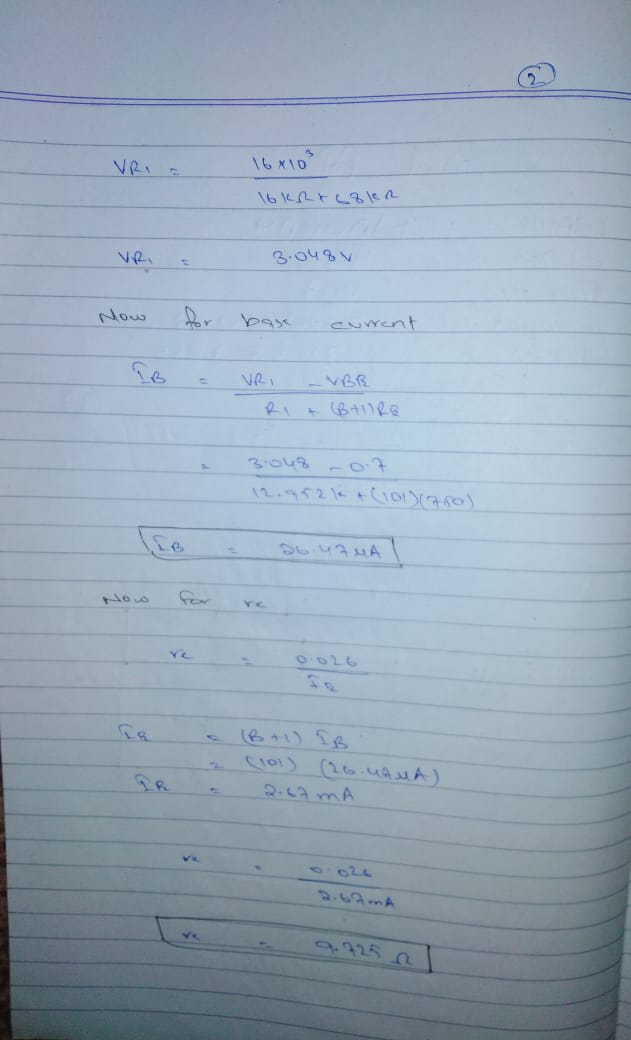 2
VR1 = 16×10³
16kΩ + 68kΩ
VR1 = 3.048V
Now for base current
IB = VR1 - VBE
R1 + (B+1)RE
= 3.048 - 0.7
12.952k + (101)(750)
IB = 26.47 µA
Now for re
re = 0.026
IE
IE = (B+1) IB
= (101) (26.47µA)
IE = 2.67 mA
re = 0.026
2.67mA
re = 9.725 Ω